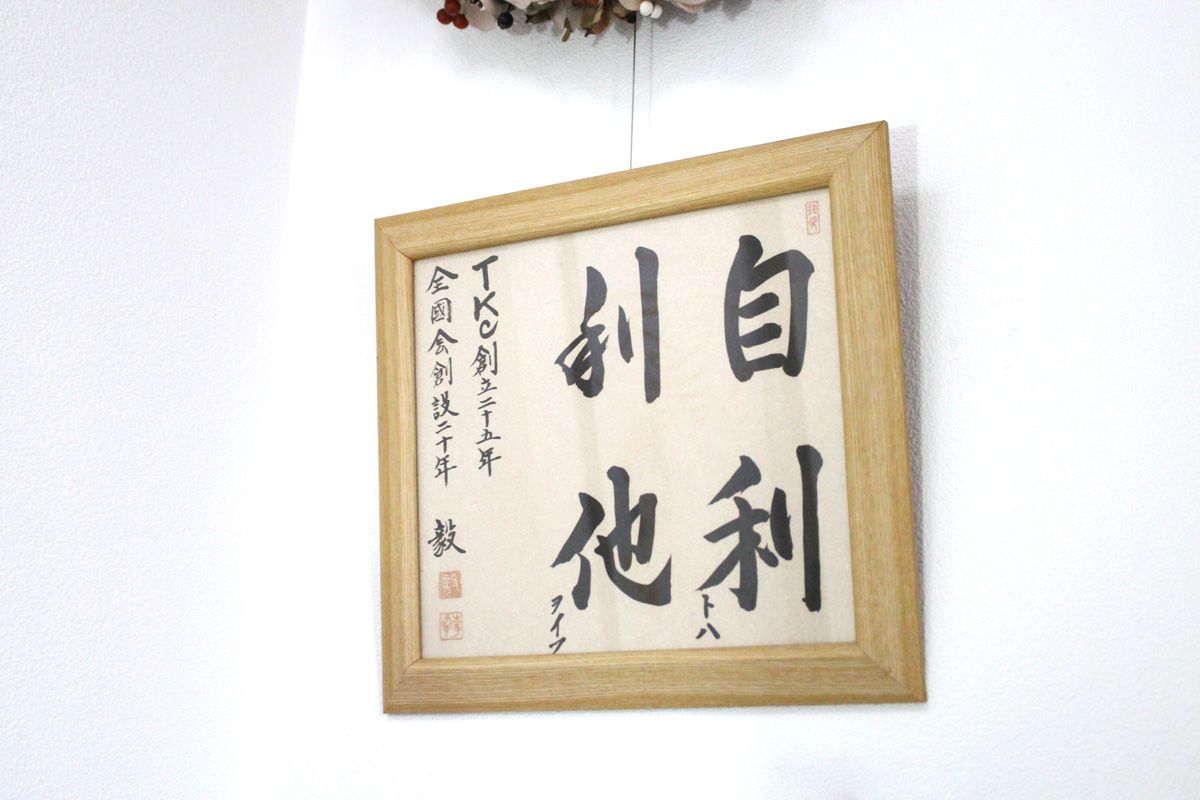 自利トハ
利他ヲイフ
TKC創立二十五年
全國会創設二十年 毅